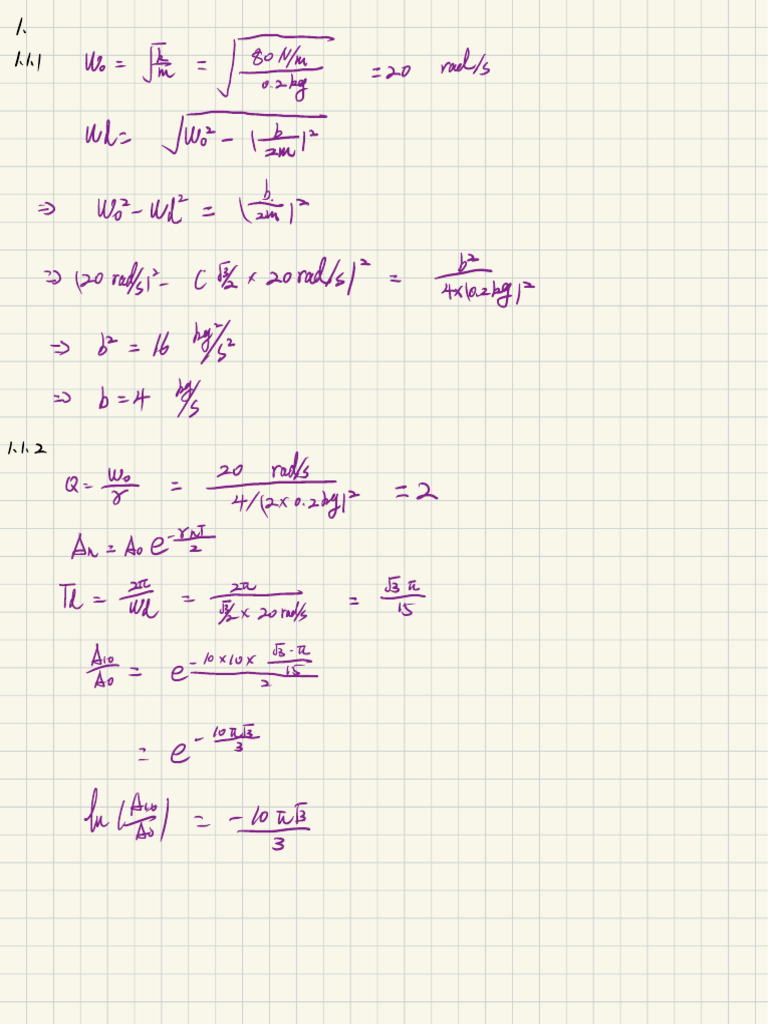 1.
1.1.1 W₀ = √(k/m) = √(80 N/m / 0.2kg) = 20 rad/s
Wd = √(W₀² - (b/2m)²)
⇒ W₀² - Wd² = (b/2m)²
⇒ (20 rad/s)² - (√3/2 × 20 rad/s)² = b²/(4×(0.2kg)²)
⇒ b² = 16 kg²/s²
⇒ b = 4 kg/s
1.1.2
Q = W₀/γ = 20 rad/s / 4/(2×0.2kg)² = 2
An = A₀ e^(-γnT/2)
Td = 2π/Wd = 2π/(√3/2 × 20 rad/s) = √3 π/15
A₁₀/A₀ = e^(-10×10× (√3·π/15)/2)
= e^(-10π√3/3)
ln(A₁₀/A₀) = -10π√3/3